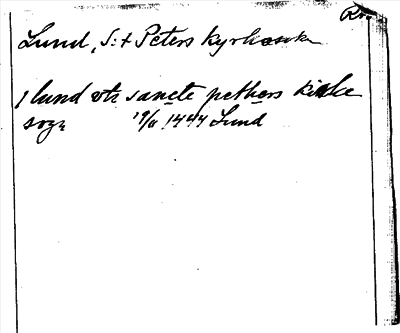 Lund, S:t Peters kyrkosock
J lund vti sancte pethers kirke
sogn 19/11 1444 Lund